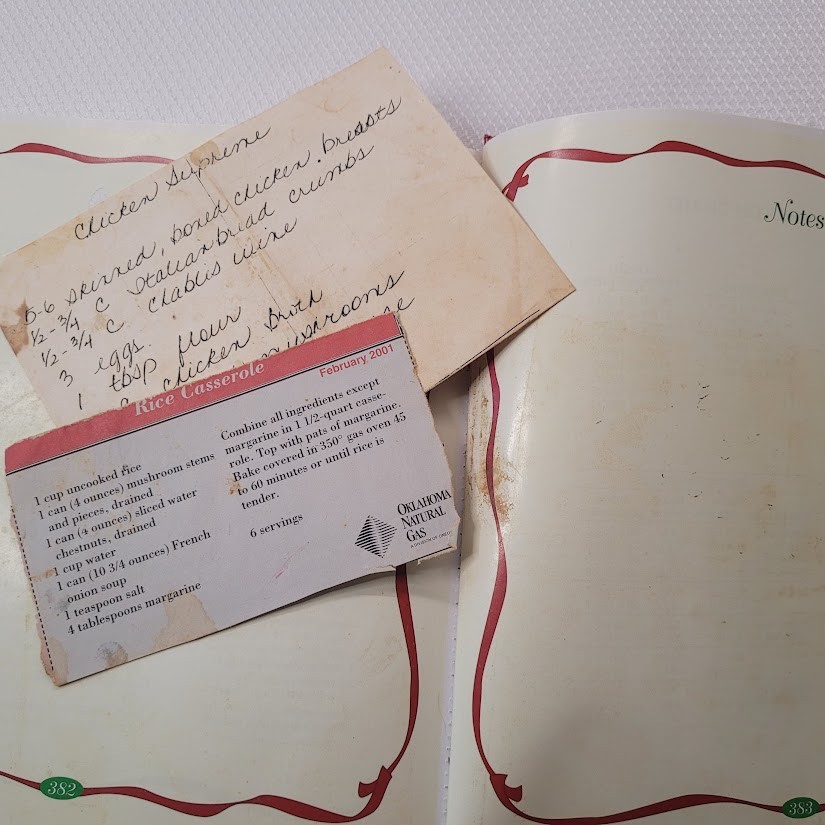 Chicken Supreme
5-6 skinned, boned chicken breasts
1/2-3/4 C Italian bread crumbs
1/2-3/4 C Chablis wine
3 eggs
1 tbsp flour
chicken broth
mushrooms
Rice Casserole
February, 2001
1 cup uncooked rice
1 can (4 ounces) mushroom stems
and pieces, drained
1 can (4 ounces) sliced water
chestnuts, drained
1 cup water
1 can (10 3/4 ounces) French
onion soup
1 teaspoon salt
4 tablespoons margarine
Combine all ingredients except
margarine in 1 1/2-quart casse-
role. Top with pats of margarine.
Bake covered in 350° gas oven 45
to 60 minutes or until rice is
tender.
6 servings
OKLAHOMA
NATURAL
GAS
Notes
382
383